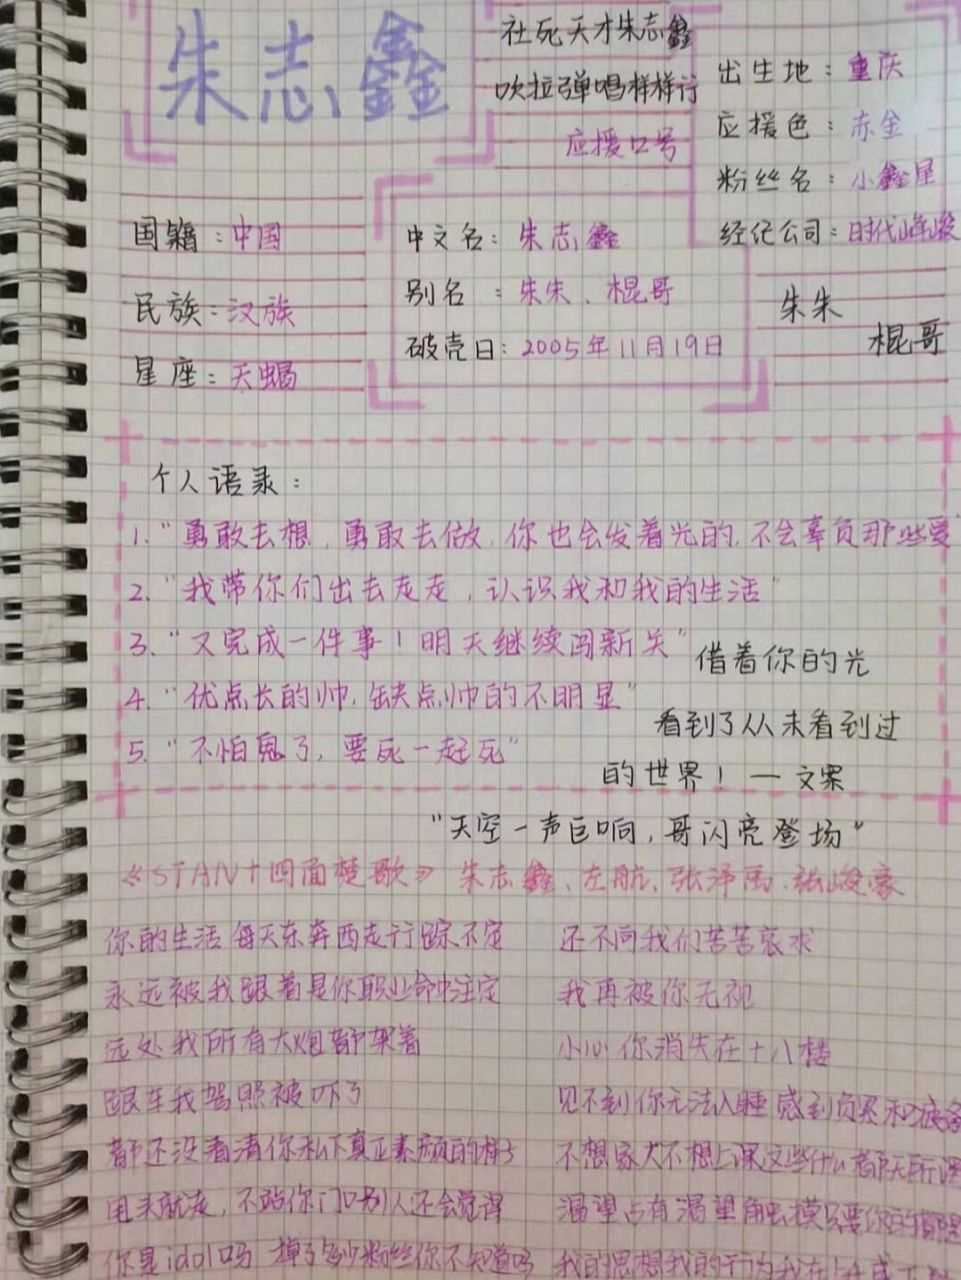 朱志鑫
社死天才朱志鑫
吹拉弹唱样样行
应援口号
出生地：重庆
应援色：赤金
粉丝名：小鑫星
经纪公司：时代峰峻
国籍：中国
民族：汉族
星座：天蝎
中文名：朱志鑫
别名：朱朱、棍哥
破壳日：2005年11月19日
朱朱
棍哥
个人语录：
1.“勇敢去想，勇敢去做，你也会发着光的，不会辜负那些爱
2.“我带你们出去走走，认识我和我的生活”
3.“又完成一件事！明天继续闯新关”
4.“优点长的帅，缺点帅的不明显”
5.“不怕鬼了，要死一起死”
借着你的光
看到了从未看到过
的世界！—文案
“天空一声巨响，哥闪亮登场”
《STAN+四面楚歌》朱志鑫、左航、张泽禹、张峻豪
你的生活每天东奔西走行踪不定
永远被我跟着是你职业命中注定
远处我所有大炮都架着
跟车我驾照被吓了
都还没看清你私下真正素颜的样子
甩头就走，不站你门口别人还会觉得
你是idol吗 掉了多少粉丝你不知道吗
还不向我们苦苦哀求
我再被你无视
小心你消失在十八楼
见不到你无法入睡 感到负累和疲备
不想家犬不想上课这些什么都无所谓
渴望占有渴望触摸只要你的
我的思想我的行为我在